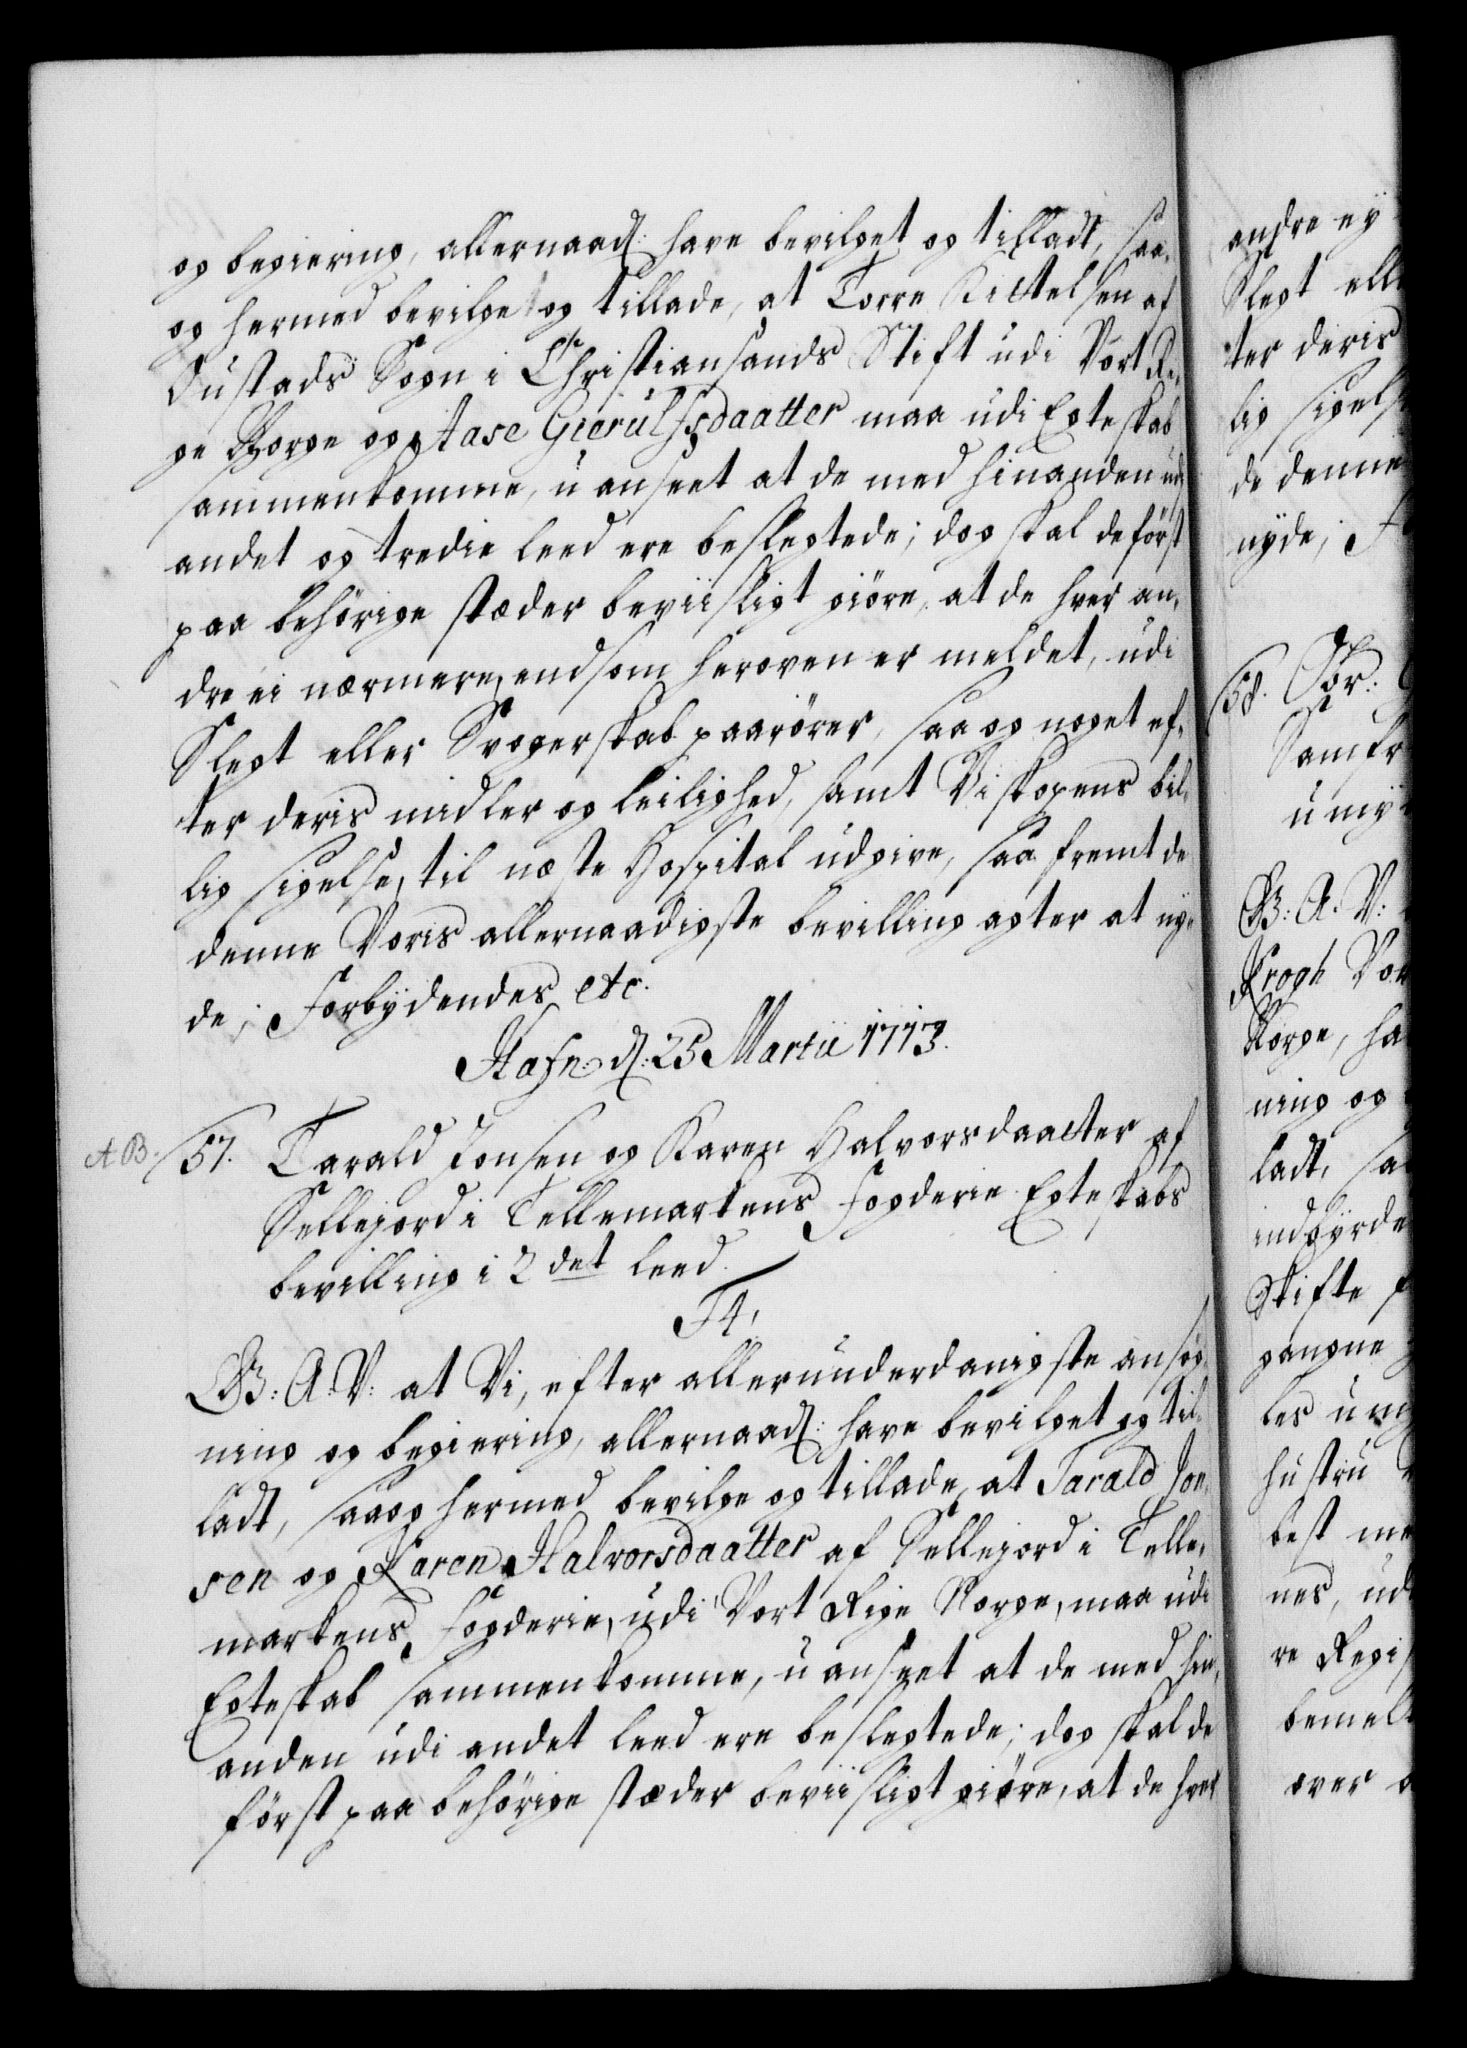 og begiering, allernaad: have bevilget og tilladt, saa-
og hermed bevilge og tillade, at Torre Kittelsen af
Sognn i Christiansands Stift udi Vort Ri-
ge Norge og Aase Gierulfsdaatter maa udi Egteskab
sammenkomme, uanseet at de med hinanden udj
andet og tredie leed ere beslegtede; dog skal de först
paa behörige stæder beviisligt giöre, at de hver an-
dre ei nærmere, end som heroven er meldet, udi
Slegt eller Svogerskab paarörer, saa og noget ef-
ter deris midler og leilighed, samt Biskopens bil-
lig sigelse, til næste Hospital udgive, saa fremt de
denne Voris allernaadigste bevilling agter at nÿ-
de; Forbÿdendes etc.
Hafn: d: 25 Martii 1713.
AB. 57. Tarald Jonsen og Karen Halvorsdaatter af
Sellegord i Tellemarkens Fogderie Egteskabs
bevilling i 2det leed.
F4,
G: A: V: at Vi, efter allerunderdanigste ansög-
ning og begiering, allernaad: have bevilget og til-
ladt, saa og hermed bevilge og tillade, at Tarald Jon-
sen og Karen Halvorsdaatter af Sellegord i Telle-
markens Fogderie, udi Vort Rige Norge, maa udi
Egteskab sammenkomme, uanseet at de med hin-
anden udi andet leed ere beslegtede; dog skal de
först paa behörige stæder beviisligt giöre, at de hver
andre eÿ
Slegt ell
ter deris
lig sigels
de denne
nyde; F
58. Sör:
Samfr
umÿ
G: A: V:
Krogh Vor
Norge, ha
ning og
ladt, sa
indbÿrde
Skifte
gangne
les umÿ
hustru
best me
nes, ud
re Regis
bemelt
over